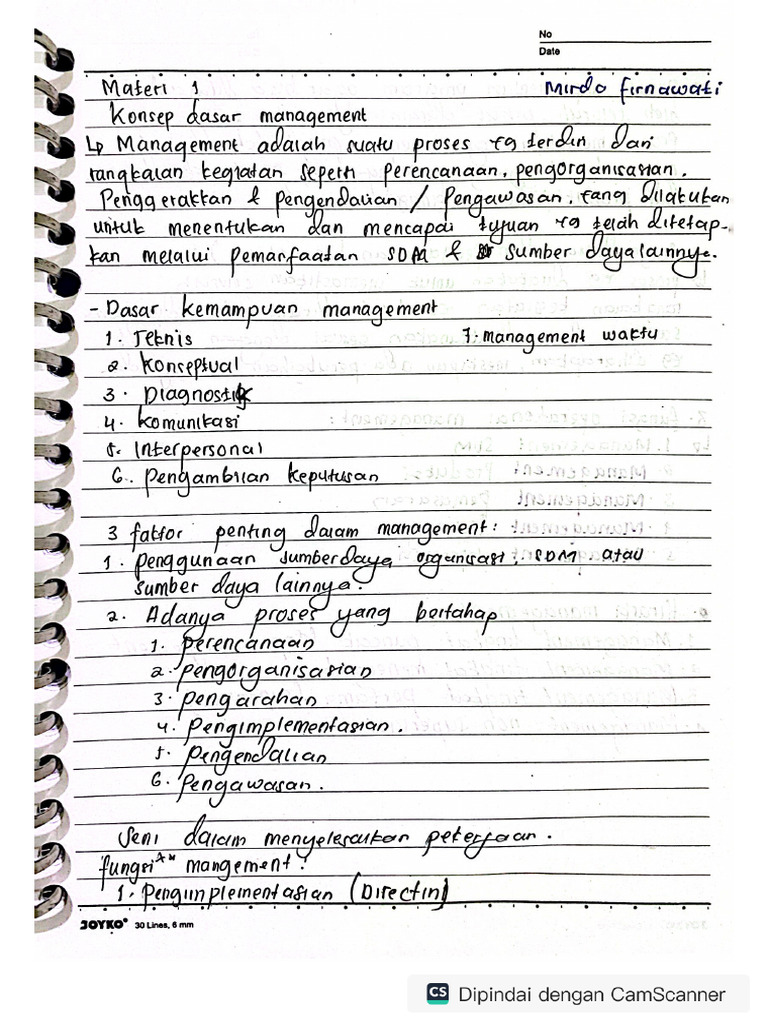 No
Date
Materi 1 Mirda firnawati
Konsep dasar management
↳ Management adalah suatu proses yg terdiri dari
rangkaian kegiatan seperti perencanaan, pengorganisasian.
Penggerakkan & pengendalian / Pengawasan, yang dilakukan
untuk menentukan dan mencapai tujuan yg telah ditetap-
kan melalui pemanfaatan SDM & sumber daya lainnya.
- Dasar kemampuan management
1. Teknis 7. management waktu
2. Konseptual
3. Diagnostik
4. Komunikasi
5. Interpersonal
6. Pengambilan keputusan
3 faktor penting dalam management:
1. penggunaan sumber daya organisasi, SDM atau
sumber daya lainnya.
2. Adanya proses yang bertahap
1. perencanaan
2. pengorganisasian
3. pengarahan
4. Pengimplementasian.
5. pengendalian
6. Pengawasan.
Seni dalam menyelesaikan pekerjaan.
fungsi** mangement:
1. Pengimplementasian (Directin)
JOYKO® 30 Lines, 6 mm
CS Dipindai dengan CamScanner